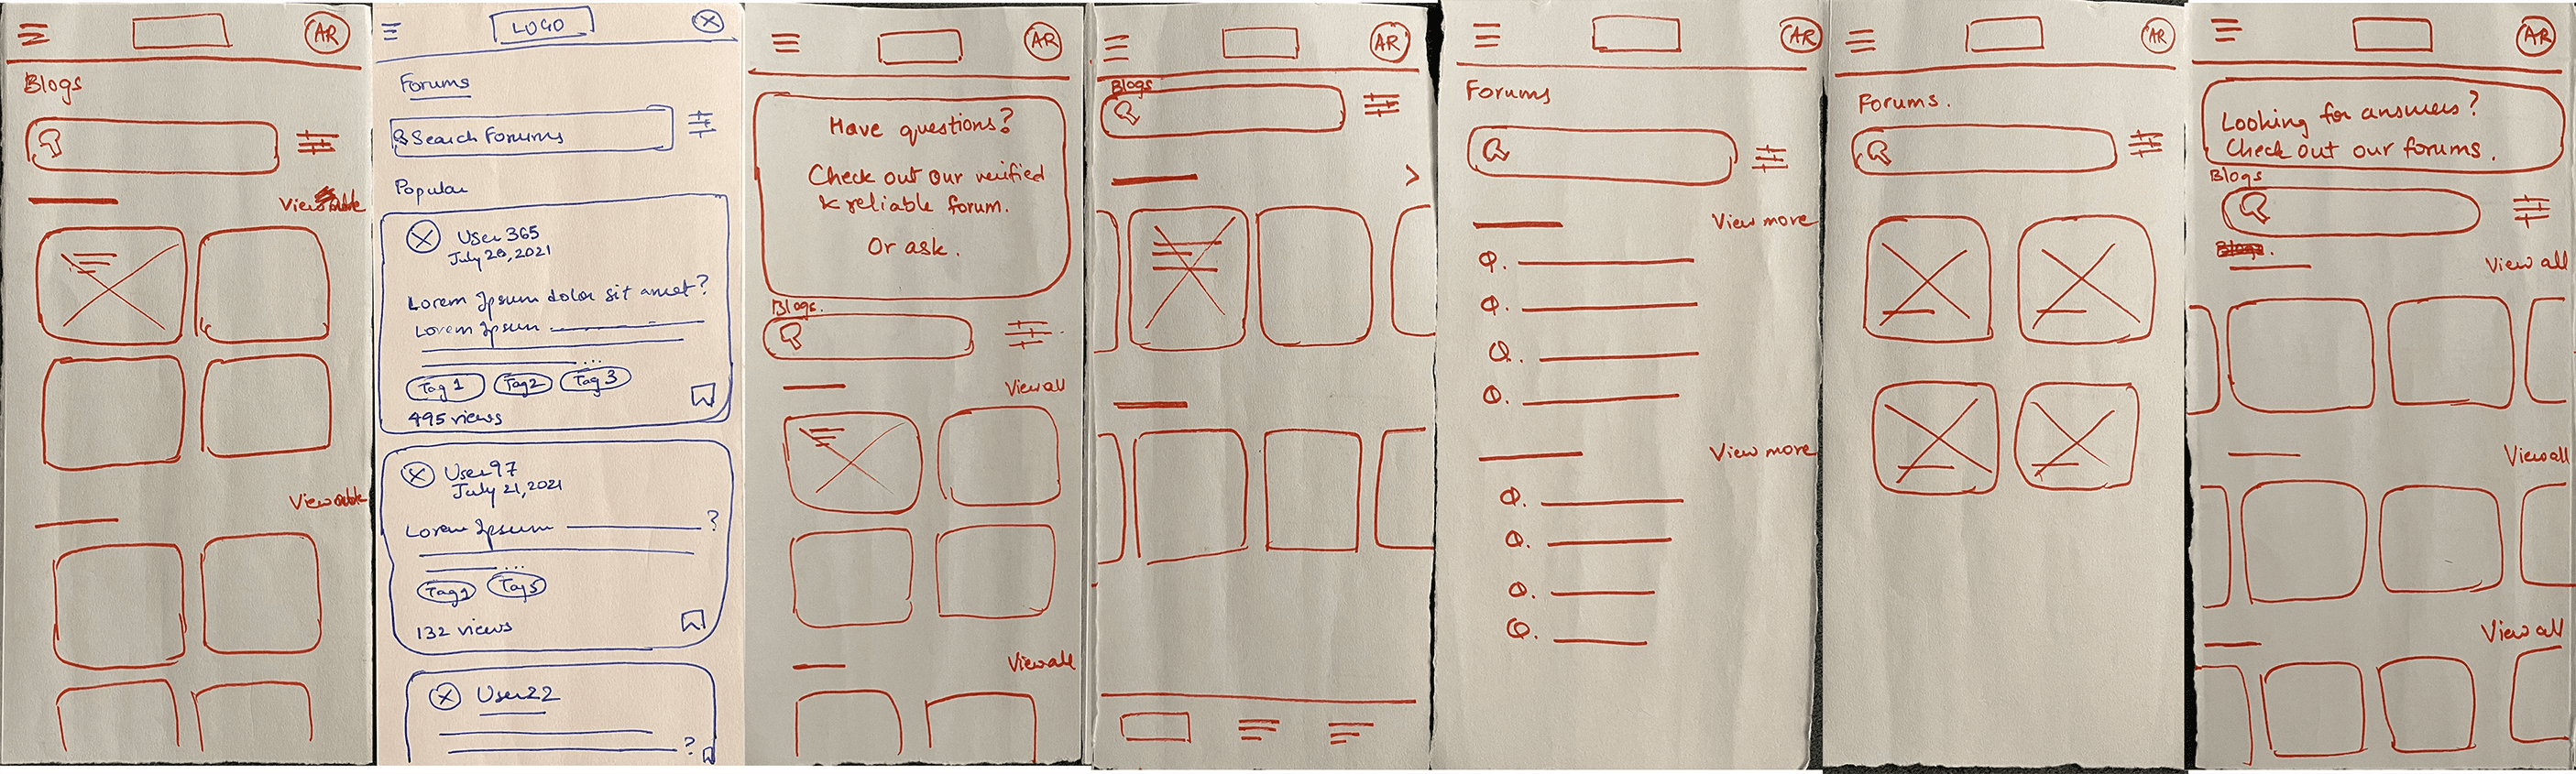 AR
Blogs
View all
LOGO
Forums
Search Forums
Popular
User 365
July 28, 2021
Lorem Ipsum dolor sit amet?
Lorem Ipsum
...
Tag 1 Tag2 Tag 3
495 views
User 97
July 21, 2021
Lorem Ipsum ?
...
Tag1 Tag5
132 views
User22
?
AR
Have questions?
Check out our verified
& reliable forum.
Or ask.
Blogs.
View all
View all
AR
Blogs
>
AR
Forums
View more
Q.
Q.
Q.
Q.
View more
Q.
Q.
Q.
Q.
AR
Forums.
AR
Looking for answers?
Check out our forums.
Blogs
View all
View all
View all